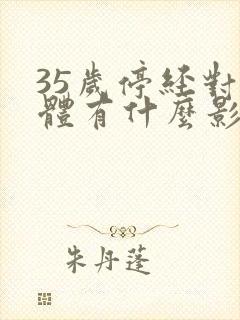 35歲停經對
體有什麼影
朱丹蓬